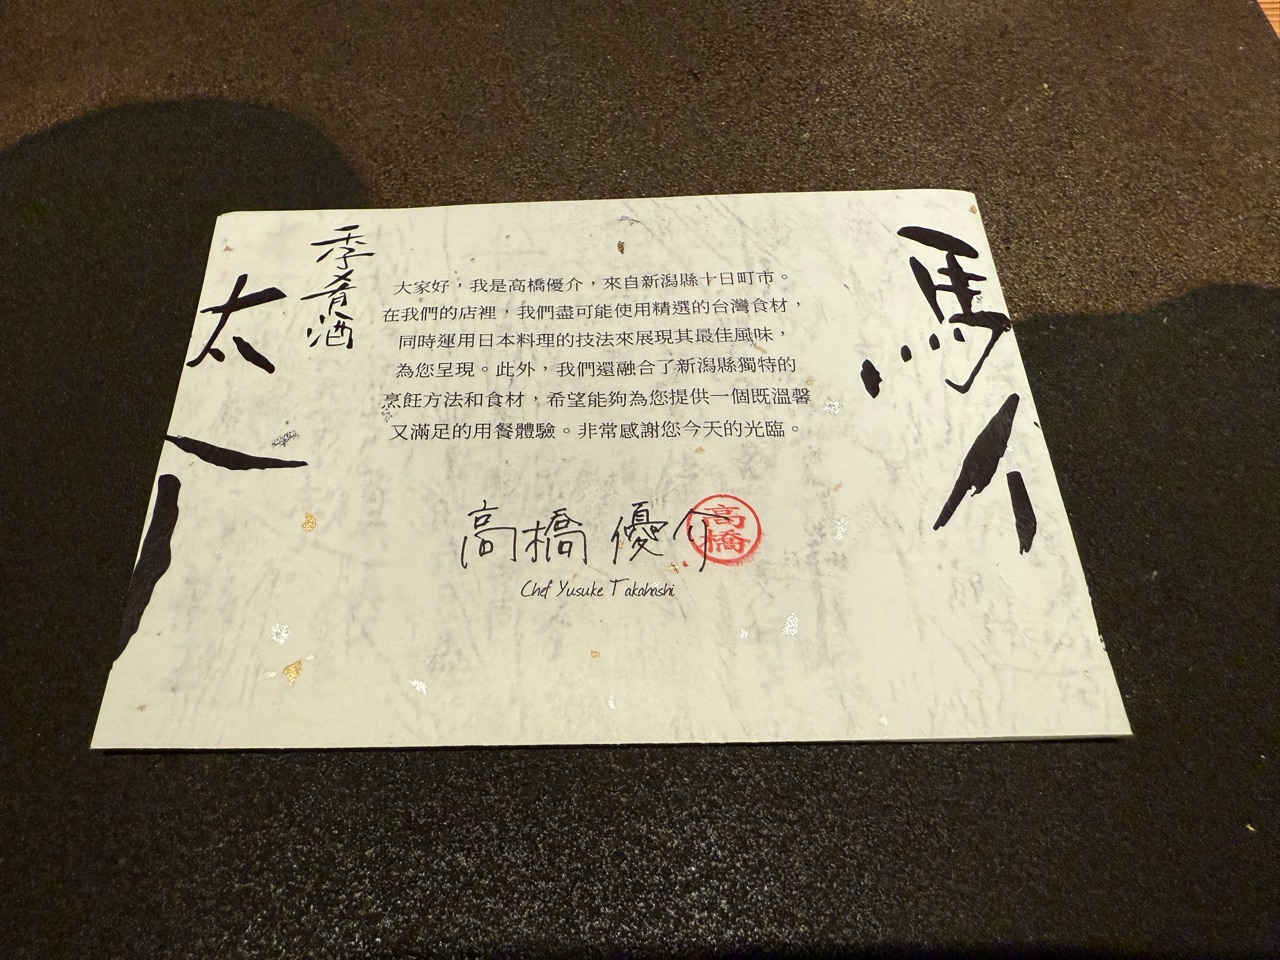 季肴酒
大家好，我是高橋優介，來自新潟縣十日町市。
在我們的店裡，我們盡可能使用精選的台灣食材，
同時運用日本料理的技法來展現其最佳風味，
為您呈現。此外，我們還融合了新潟縣獨特的
烹飪方法和食材，希望能夠為您提供一個既溫馨
又滿足的用餐體驗。非常感謝您今天的光臨。
高橋 優介
高橋
Chef Yusuke Takahashi